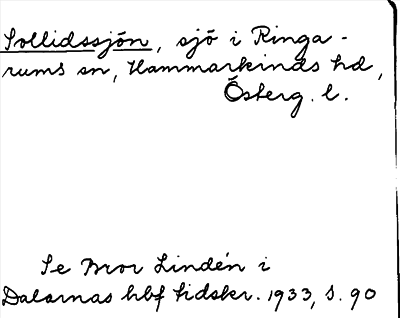 Sollidssjön, sjö i Ringa-
rums sn, Hammarkinds hd,
Österg. l.
Se Bror Lindén i
Dalarnas hbf tidskr. 1933, s. 90